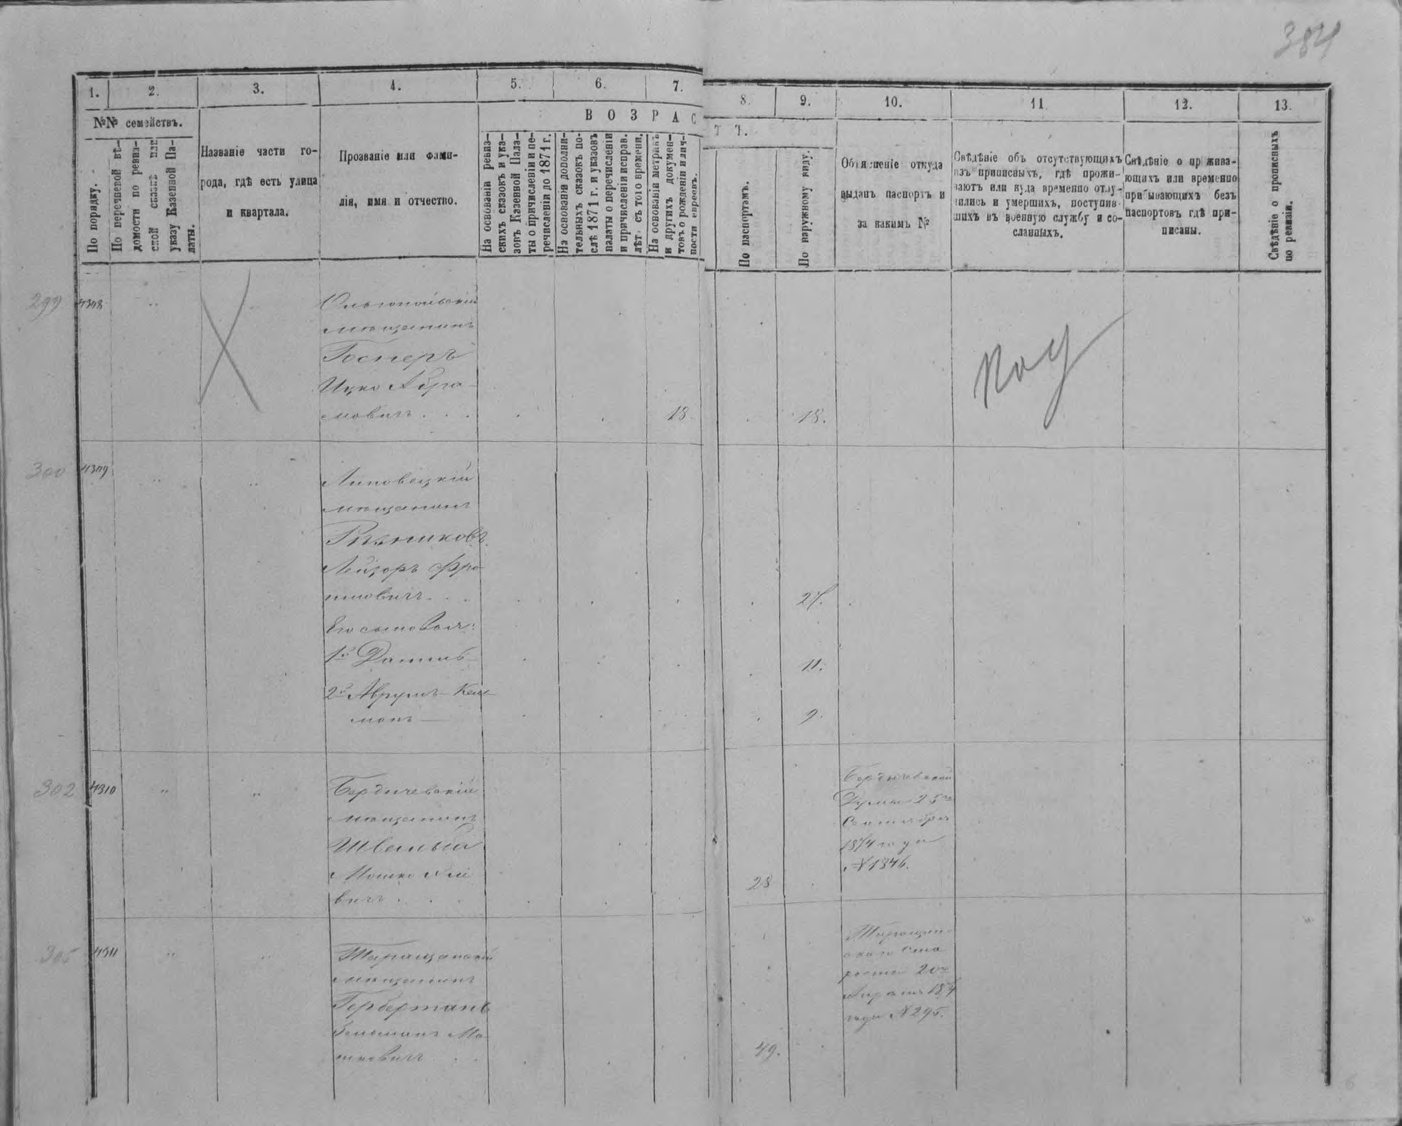 384
1.
2.
3.
4.
5.
6.
7.
8.
9.
10.
11
12.
13.
№№ семействъ.
ВОЗРАС
ТЪ.
По порядку.
По перечневой вѣ-
домости по ревиз-
ской сказкѣ или
указу Казенной Па-
латы.
Названіе части го-
рода, гдѣ есть улица
и квартала.
Прозваніе или фами-
лія, имя и отчество.
На основаніи ревиз-
скихъ сказокъ и ука-
зовъ Казенной Пала-
ты о причисленіи и пе-
речисленіи до 1871 г.
На основаніи дополни-
тельныхъ сказокъ по-
слѣ 1871 г. и указовъ
палаты о перечисленіи
и причисленіи исправ.
лѣт. съ того времени.
На основаніи метрикъ
и другихъ докумен-
товъ о рожденіи и лич-
ности евреевъ.
По паспортамъ.
По наружному виду.
Объясненіе откуда
выданъ паспортъ и
за какимъ №
Свѣдѣніе объ отсутствующихъ
изъ приписныхъ, гдѣ прожи-
ваютъ или куда временно отлу-
чились и умершихъ, поступив-
шихъ въ военную службу и со-
сланныхъ.
Свѣдѣніе о прожива-
ющихъ или временно
прибывающихъ безъ
паспортовъ гдѣ при-
писаны.
Свѣдѣніе о прописныхъ
по ревизіи.
299
4308
Ольгопольскій
мѣщанинъ
Госперъ
Ицко Абра-
мовичъ
18
18.
300
4309
Липовецкій
мѣщанинъ
Рѣзниковъ
Лейзеръ Фро-
имовичъ
27.
Его сыновья:
1й
11.
2й Аврумъ Кел-
манъ
9.
302
4310
Бердичевскій
мѣщанинъ
Швецъ
Мошко
вичъ
28
Бердичевской
Думы 25го
Сентября
1874 года
№ 1346.
305
4311
Таращанскій
мѣщанинъ
Герберманъ
Мо-
шковичъ
49.
Таращан-
скаго Ста-
росты 20го
Апрѣля 187
года № 295.